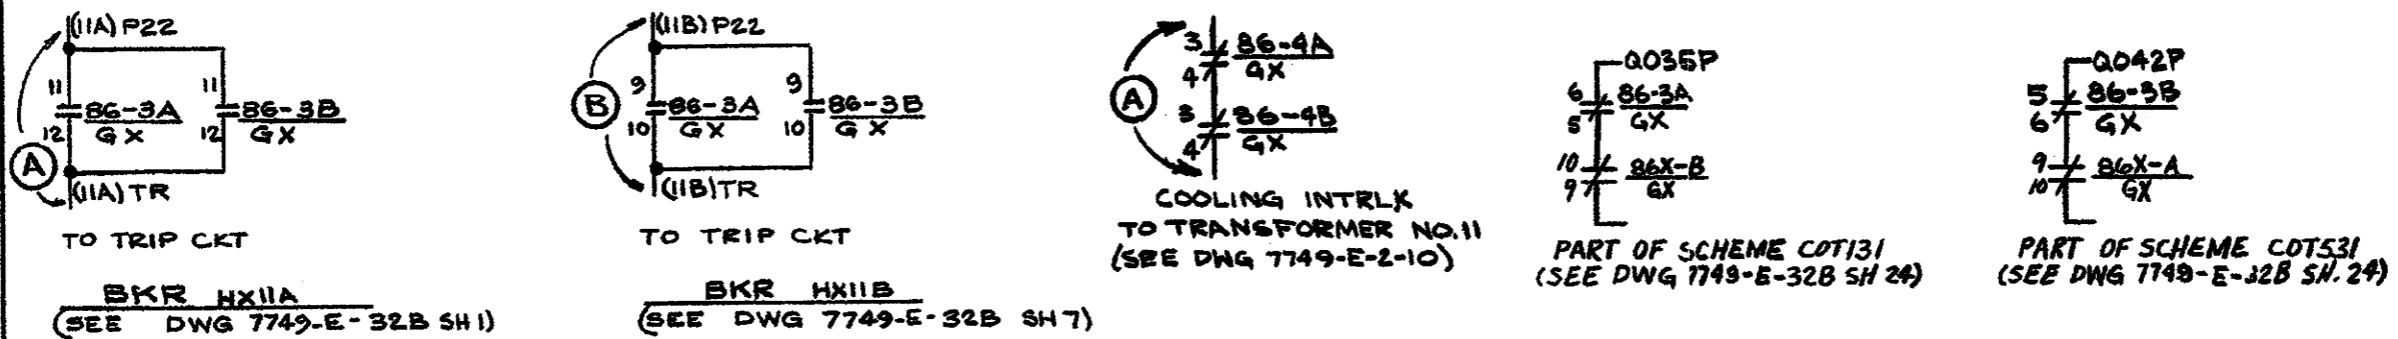 (11A) P22
11
11
86-3A
GX
86-3B
GX
12
12
A
(11A) TR
TO TRIP CKT
BKR HX11A
(SEE DWG 7749-E-32B SH 1)
(11B) P22
9
9
B
86-3A
GX
86-3B
GX
10
10
(11B) TR
TO TRIP CKT
BKR HX11B
(SEE DWG 7749-E-32B SH 7)
3
86-4A
GX
4
A
3
86-4B
GX
4
COOLING INTRLK
TO TRANSFORMER NO.11
(SEE DWG 7749-E-2-10)
Q035P
6
86-3A
GX
5
10
86X-B
GX
9
PART OF SCHEME COT131
(SEE DWG 7749-E-32B SH 24)
Q042P
5
86-3B
GX
6
9
86X-A
GX
10
PART OF SCHEME COT531
(SEE DWG 7749-E-32B SH. 24)